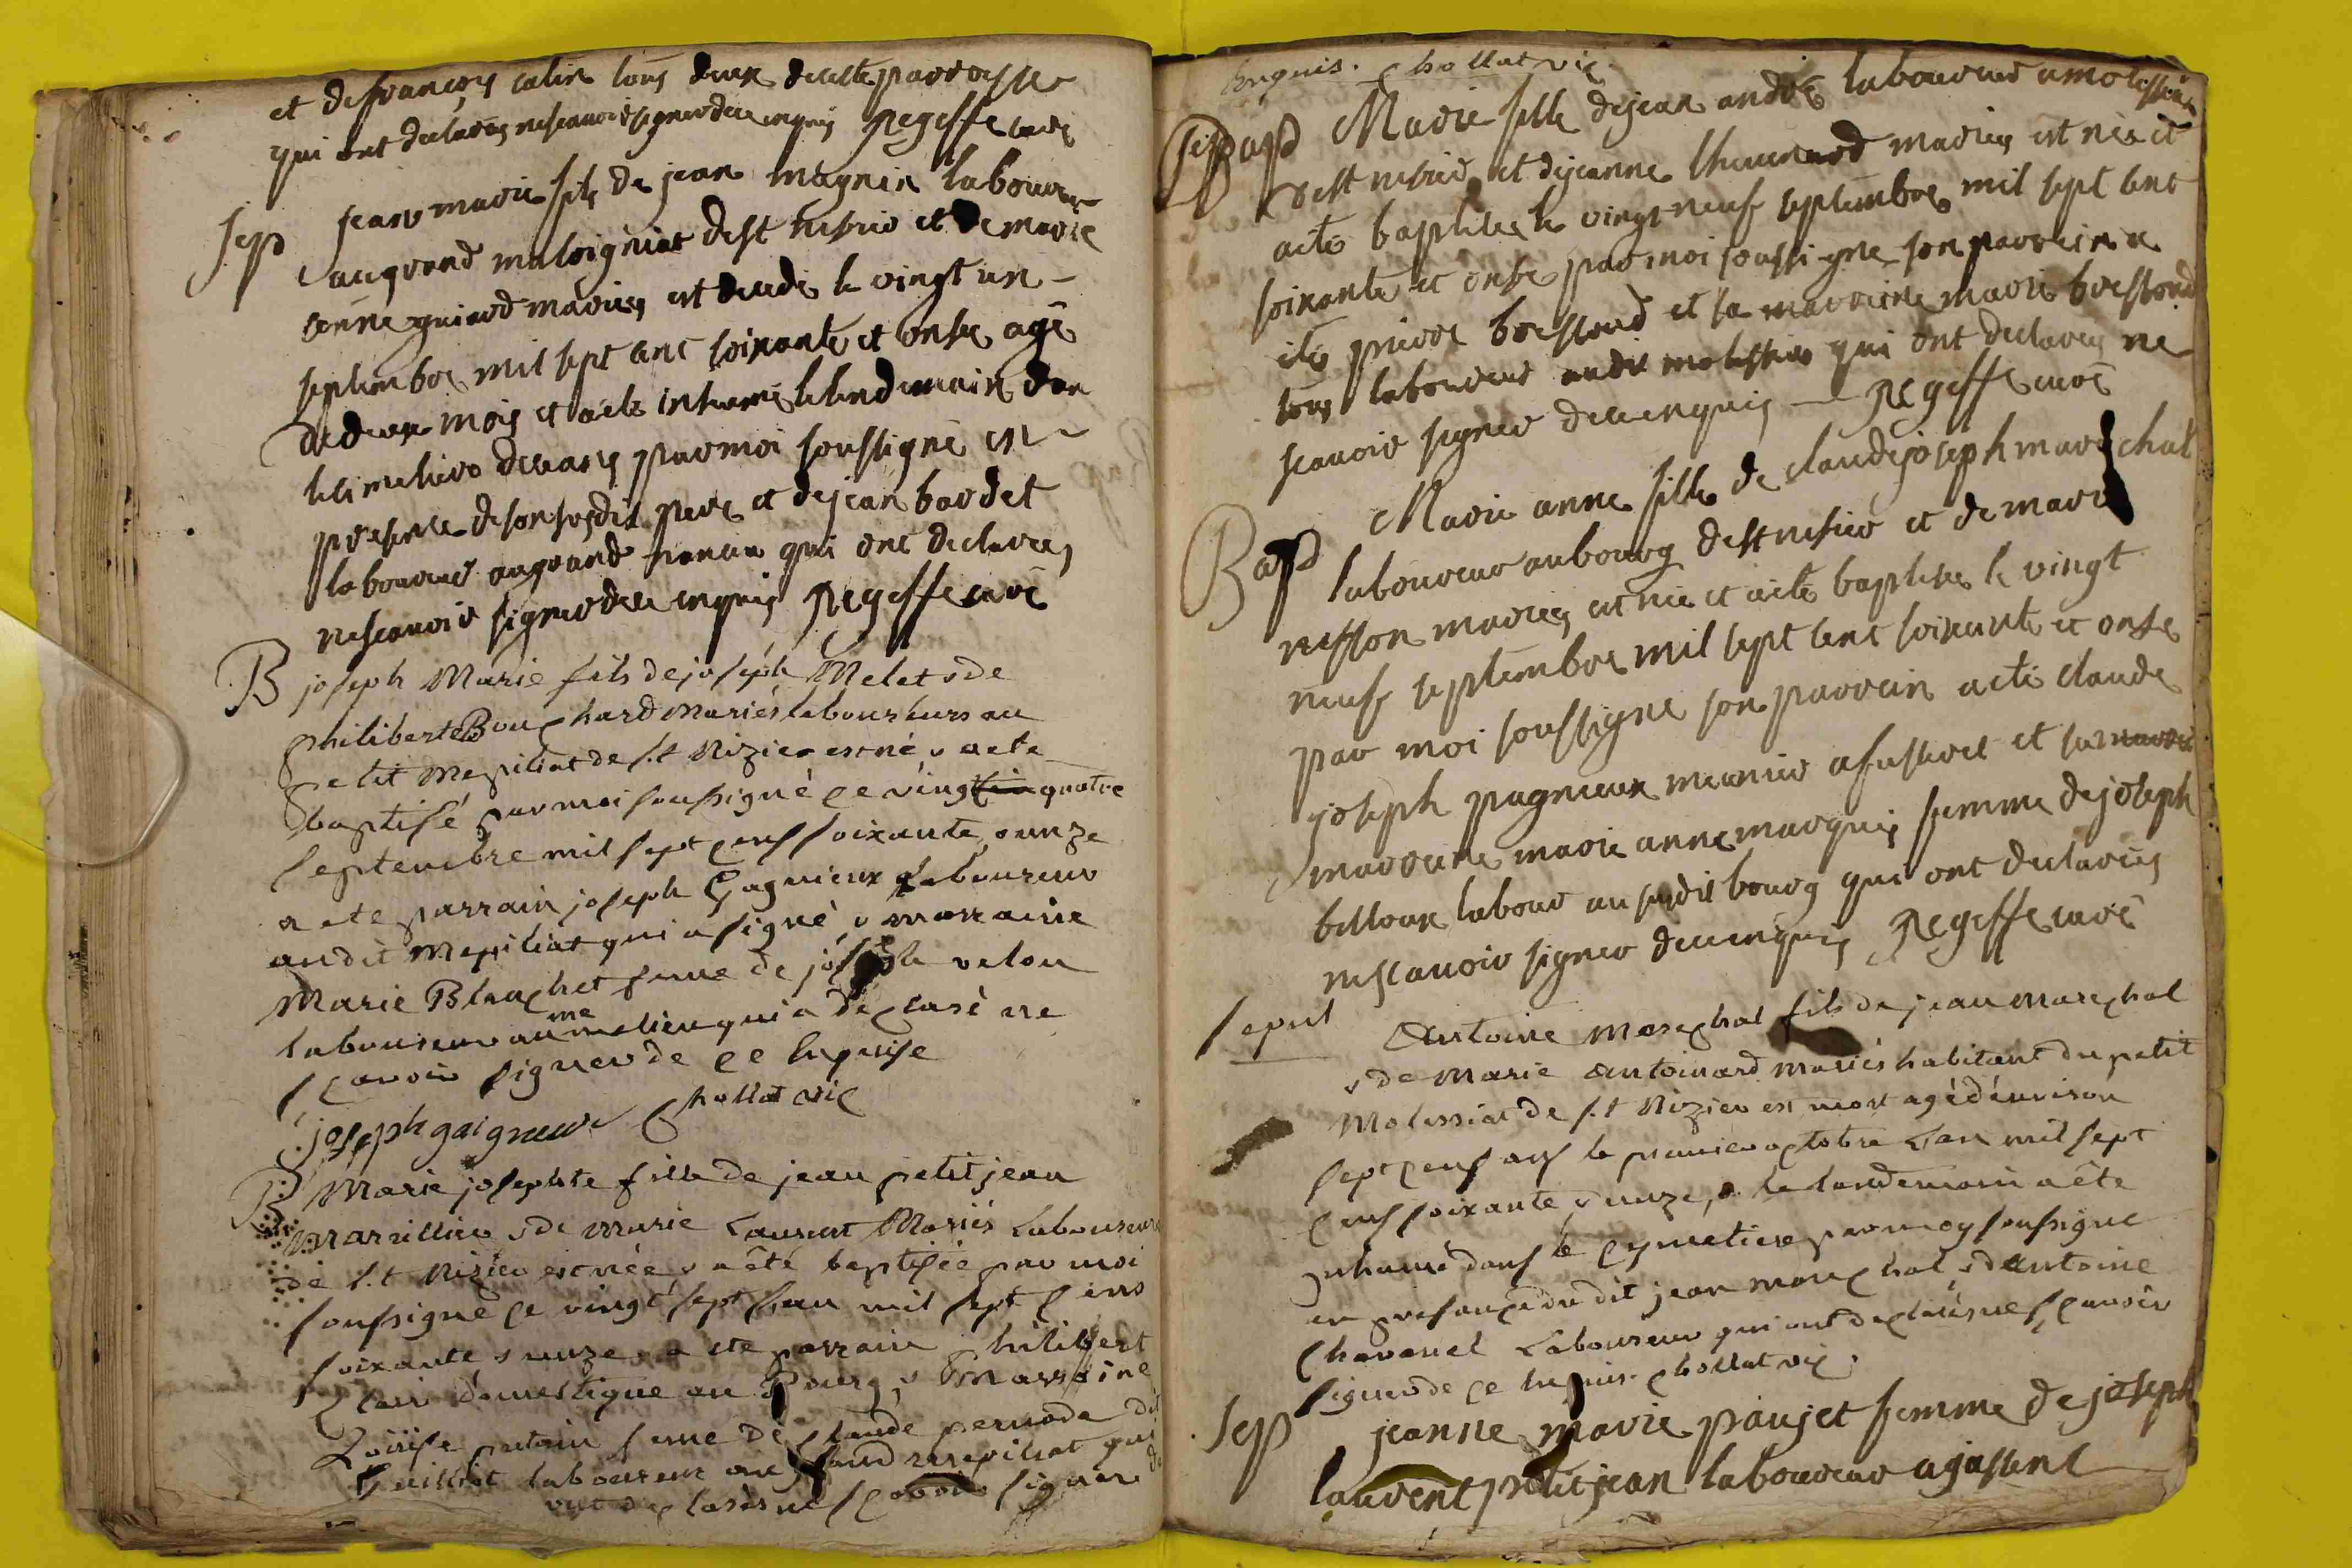 et de françois catin tous deux de cette parroisse
qui ont declarés ne scavoir signer de ce enquis Regeffe curé
sep jean marie fils de jean magnin laboureur
au grand malsigniat de st nisier et de marie
anne guiard mariés est decedé le vingt un
septembre mil sept cent soixante et onse agé
de deux mois et a eté inhumé le lendemain dan
le cimetiere de ceans par moi soussigné en
presence de son susdit pere et de jean bardet
laboureur au grand nancin qui ont declarés
ne scavoir signer de ce enquis Regeffe curé
B joseph Marie fils de joseph Melet & de
philiberte Bouchard Mariés laboureurs au
petit Mepiliat de s.t Nizier est né & a ete
baptisé par moi soussigné ce vingt quatre
septembre mil sept cens soixante & unze
a ete parrain joseph Gagnieux Laboureur
audit Mepiliat qui a signé & marraine
Marie Blanchet feme de joseph velon
laboureur au me lieu qui a déclaré ne
sçavoir signer de ce enquise
joseph gaigneux Chollat vic
B Marie josephte fille de jean petitjean
Marvillier & de Marie Laurent Mariés Laboureurs
de s.t Nizier est née & a été baptisée par moi
soussigné ce vingt sept sbr mil sept cens
soixante & unze a ete parrain philibert
Clair domestique au Bourg & Marraine
Loüise putain feme de Claude pernode dit
Guilliot laboureur au grand mepiliat qui
ont declarés ne sçavoir signer
Enquis. Chollat vic.
Bap Marie fille de jean andré laboureur a molissiat
de st nisier et de jeanne thevenard mariés est née et
a eté baptisée le vingt neuf septembre mil sept cent
soixante et onse par moi soussigné son parrein a
eté pierre bressoud et sa marreine marie bressoud
tous laboureur audit molissiat qui ont declarés ne
scavoir signer de ce enquis Regeffe curé
Bap Marie anne fille de claude joseph marechal
laboureur au bourg de st nisier et de marie
nesson mariés est née et a eté baptisée le vingt
neuf septembre mil sept cent soixante et onse
par moi soussigné son parrein a eté claude
joseph pagneux meunier a fusseret et sa
marreine marie anne marquis femme de joseph
billoux labour au susdit bourg qui ont declarés
ne scavoir signer de ce enquis Regeffe curé
sepul Antoine Marechal fils de jean Marechal
& de Marie Antoinard mariés habitant du petit
Molissiat de s.t Nizier est mort agé d'environ
sept cens ans le premier octobre L'an mil sept
cens soixante & unze, & le landemain a ête
inhumé dans le cymetiere par moy soussigné
en presance du dit jean marechal & d'antoine
Chavanel Laboureur qui ont declarés ne sçavoir
signer de ce enquis. Chollat vic.
Sep jeanne marie paujet femme de joseph
laurent petitjean laboureur a jassent